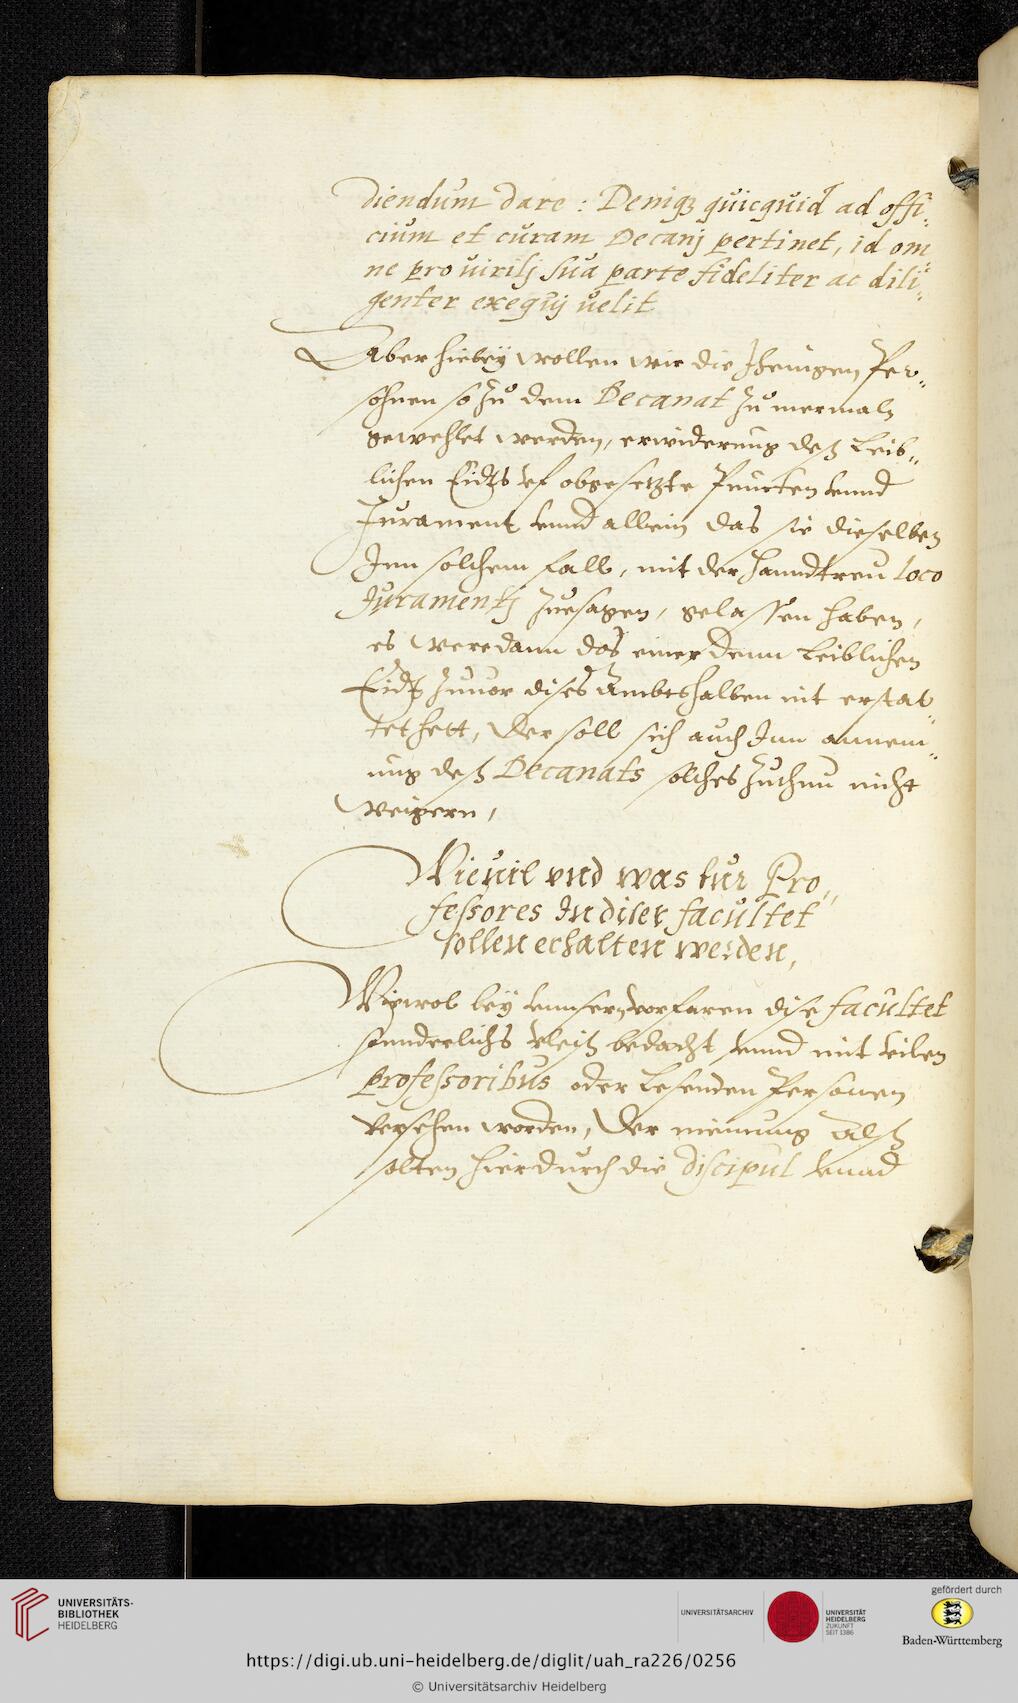 diendum dare : Deniqꝫ quicquid ad offi¬
cium et curam Decanj pertinet, id om¬
ne pro uirilj sua parte fideliter ac dili¬
genter exequj uelit
Aber hiebeÿ wollen wir die Jhenigen Per¬
sohnen so zu dem Decanat zu mermaln
gewehlet werden, erwiderung deß Leib¬
lichen Eidts vf obgesetzte Puncten vnnd
Jurament vnnd allein das sie dieselben
Inn solchem fall, mit der Hanndtreu loco
Juramentj zuesagen, gelassen haben,
es were dann das einer denn Leiblichen
Eidt zuuor dises Ambtshalben nit erstat¬
tet hett, Der soll sich auch Inn annem¬
ung deß Decanats solches zuthun nicht
weigern,
Wieuil vnd was fur Pro¬
fessores In diser facultet
sollen erhalten werden,
Wiewol beÿ vnnsern vorfaren dise facultet
sunderlichs vleiß bedacht vnnd mit vilen
professoribus oder Lesenden Personen
versehen worden, Der meinung Alß
solten hierdurch die discipul vnnd
UNIVERSITÄTS-
BIBLIOTHEK
HEIDELBERG
UNIVERSITÄTSARCHIV
UNIVERSITÄT
HEIDELBERG
ZUKUNFT
SEIT 1386
gefördert durch
Baden-Württemberg
https://digi.ub.uni-heidelberg.de/diglit/uah_ra226/0256
© Universitätsarchiv Heidelberg